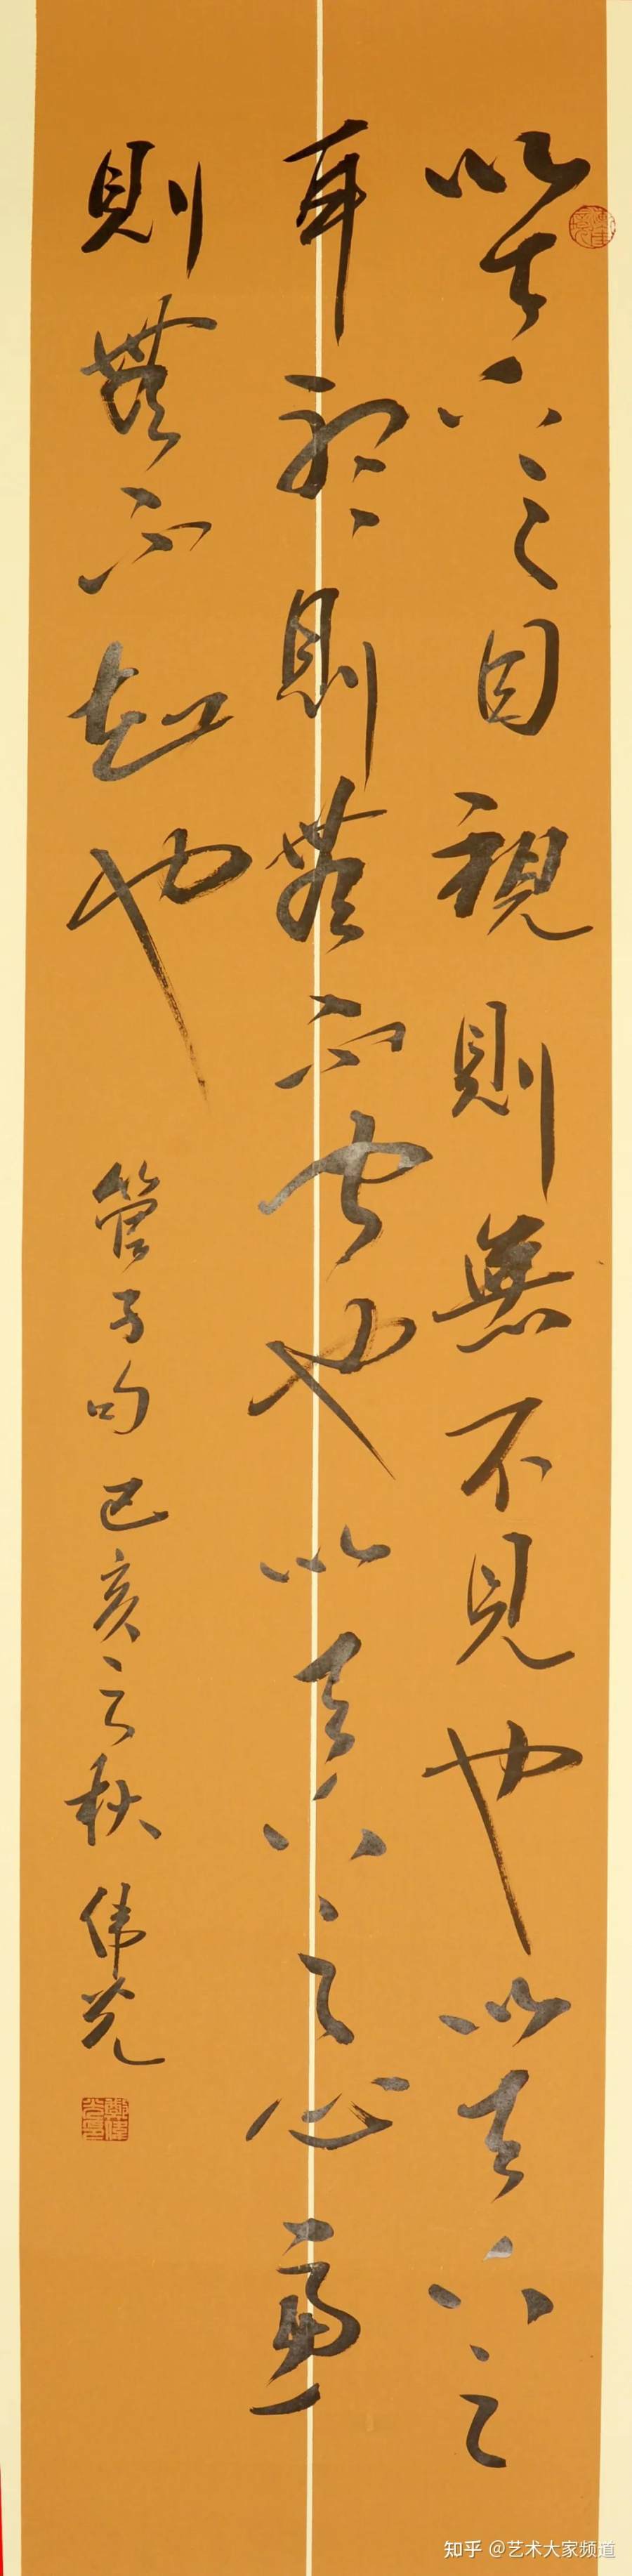 以天下之目視則無不見也以天下之
耳聽則無不聞也以天下之心慮
則無不知也
管子句己亥之秋偉光
知乎 @艺术大家频道